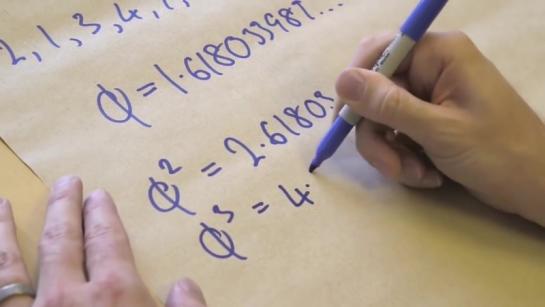 2, 1, 3, 4, 7,
φ = 1.618033987...
φ² = 2.6180
φ³ = 4.